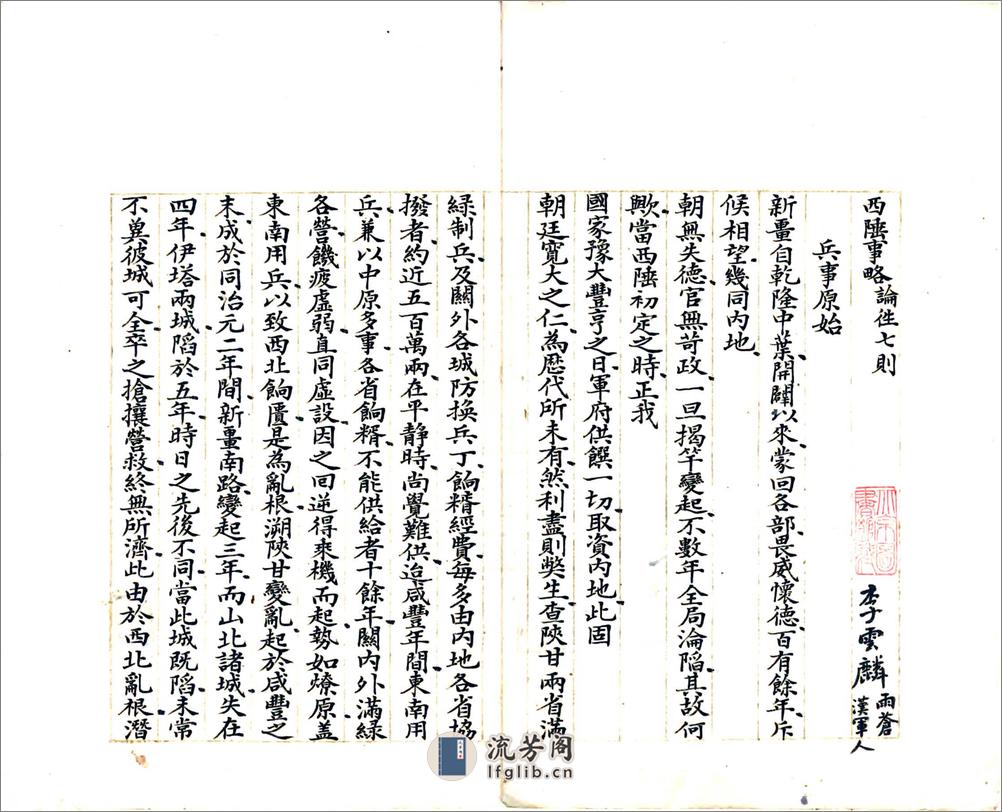 西陲事略論性七則
李雲麟
雨蒼
漢軍人
兵事原始
新畺自乾隆中葉開闢以來蒙回各部畏威懷德百有餘年斥
候相望幾同内地
朝無失德官無苛政一旦揭竿變起不數年全局淪陷其故何
歟當西陲初定之時正我
國家豫大豐亨之日軍府供饌一切取資内地此固
朝廷寬大之仁為歷代所未有然利盡則獘生查陝甘兩省滿
緑制兵及關外各城防換兵丁餉糈經費每多由内地各省協
撥者約近五百萬兩在平静時尚覺難供迨咸豐年間東南用
兵兼以中原多事各省餉糈不能供給者十餘年關内外滿緑
各營饑疲虚弱直同虚設因之回逆得乘機而起勢如燎原盖
東南用兵以致西北餉匱是為亂根溯陝甘變亂起於咸豐之
末成於同治元二年間新畺南路變起三年而山北諸城失在
四年伊塔兩城䧟於五年時日之先後不同當此城既䧟未常
不兾彼城可全卒之搶攘營救終無所濟此由於西北亂根潛
流芳阁
lfglib.cn